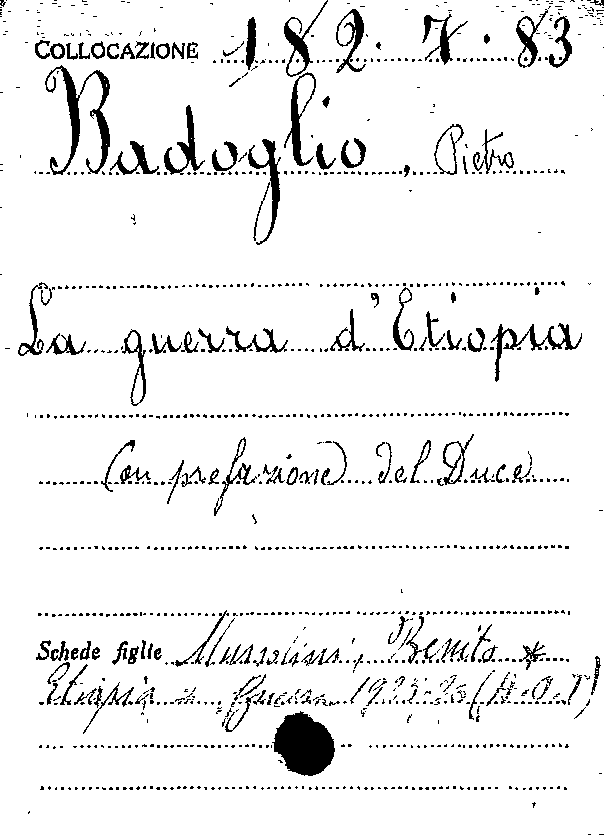 COLLOCAZIONE 182. 7. 83
Badoglio, Pietro
La guerra d'Etiopia
Con prefazione del Duce
Schede figlie Mussolini, Benito *
Etiopia * Guerra 1935-36 (A.O.I)